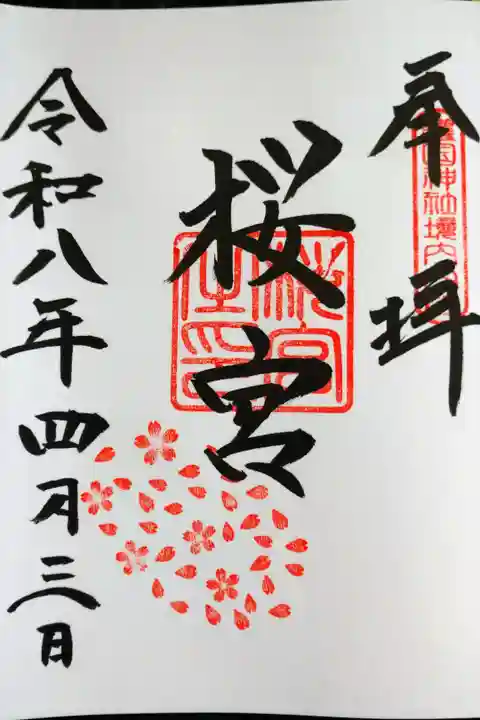 奉拝
護国神社境内
桜宮
令和八年四月三日